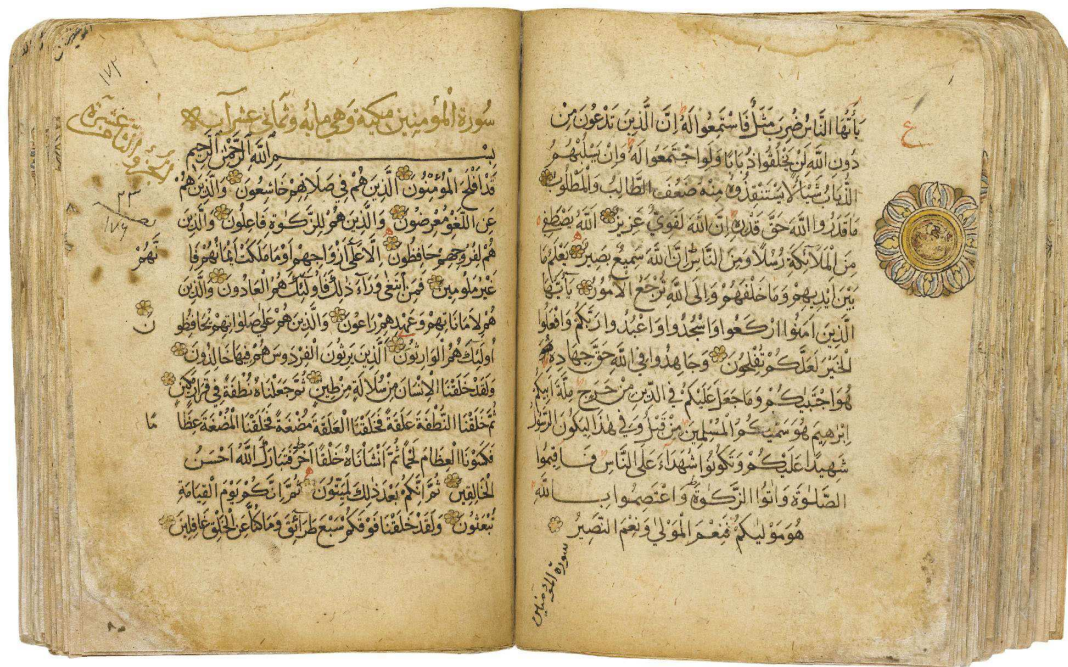 يا أيها الناس ضرب مثل فاستمعوا له إن الذين تدعون من
دون الله لن يخلقوا ذبابا ولو اجتمعوا له وإن يسلبهم
الذباب شيئا لا يستنقذوه منه ضعف الطالب والمطلوب
ما قدروا الله حق قدره إن الله لقوي عزيز الله يصطفي
من الملائكة رسلا ومن الناس إن الله سميع بصير يعلم ما
بين أيديهم وما خلفهم وإلى الله ترجع الأمور يا أيها
الذين آمنوا اركعوا واسجدوا واعبدوا ربكم وافعلوا
الخير لعلكم تفلحون وجاهدوا في الله حق جهاده
هو اجتبيكم وما جعل عليكم في الدين من حرج ملة أبيكم
إبرهيم هو سميكم المسلمين من قبل وفي هذا ليكون الرسول
شهيدا عليكم وتكونوا شهداء على الناس فاقيموا
الصلوة وآتوا الزكوة واعتصموا بالله
هو موليكم فنعم المولى ونعم النصير
سورة المؤمنين
ع
سورة المؤمنين مكية وهي مائة وثماني عشر آية
بسم الله الرحمن الرحيم
قد أفلح المؤمنون الذين هم في صلاتهم خاشعون والذين هم
عن اللغو معرضون والذين هم للزكوة فاعلون والذين
هم لفروجهم حافظون إلا على أزواجهم أو ما ملكت أيمانهم فإ
نهم
غير ملومين فمن ابتغى وراء ذلك فأولئك هم العادون والذين
هم لأماناتهم وعهدهم راعون والذين هم على صلواتهم يحافظو
ن
أولئك هم الوارثون الذين يرثون الفردوس هم فيها خالدون
ولقد خلقنا الإنسان من سلالة من طين ثم جعلناه نطفة في قرار مكين
ثم خلقنا النطفة علقة فخلقنا العلقة مضغة فخلقنا المضغة عظا
ما
فكسونا العظام لحما ثم أنشأناه خلقا آخر فتبارك الله أحسن
الخالقين ثم إنكم بعد ذلك لميتون ثم إنكم يوم القيامة
تبعثون ولقد خلقنا فوقكم سبع طرائق وما كنا عن الخلق غافلين
١٧٢
الجزء الثامن عشرة
٢٣
١٧٦